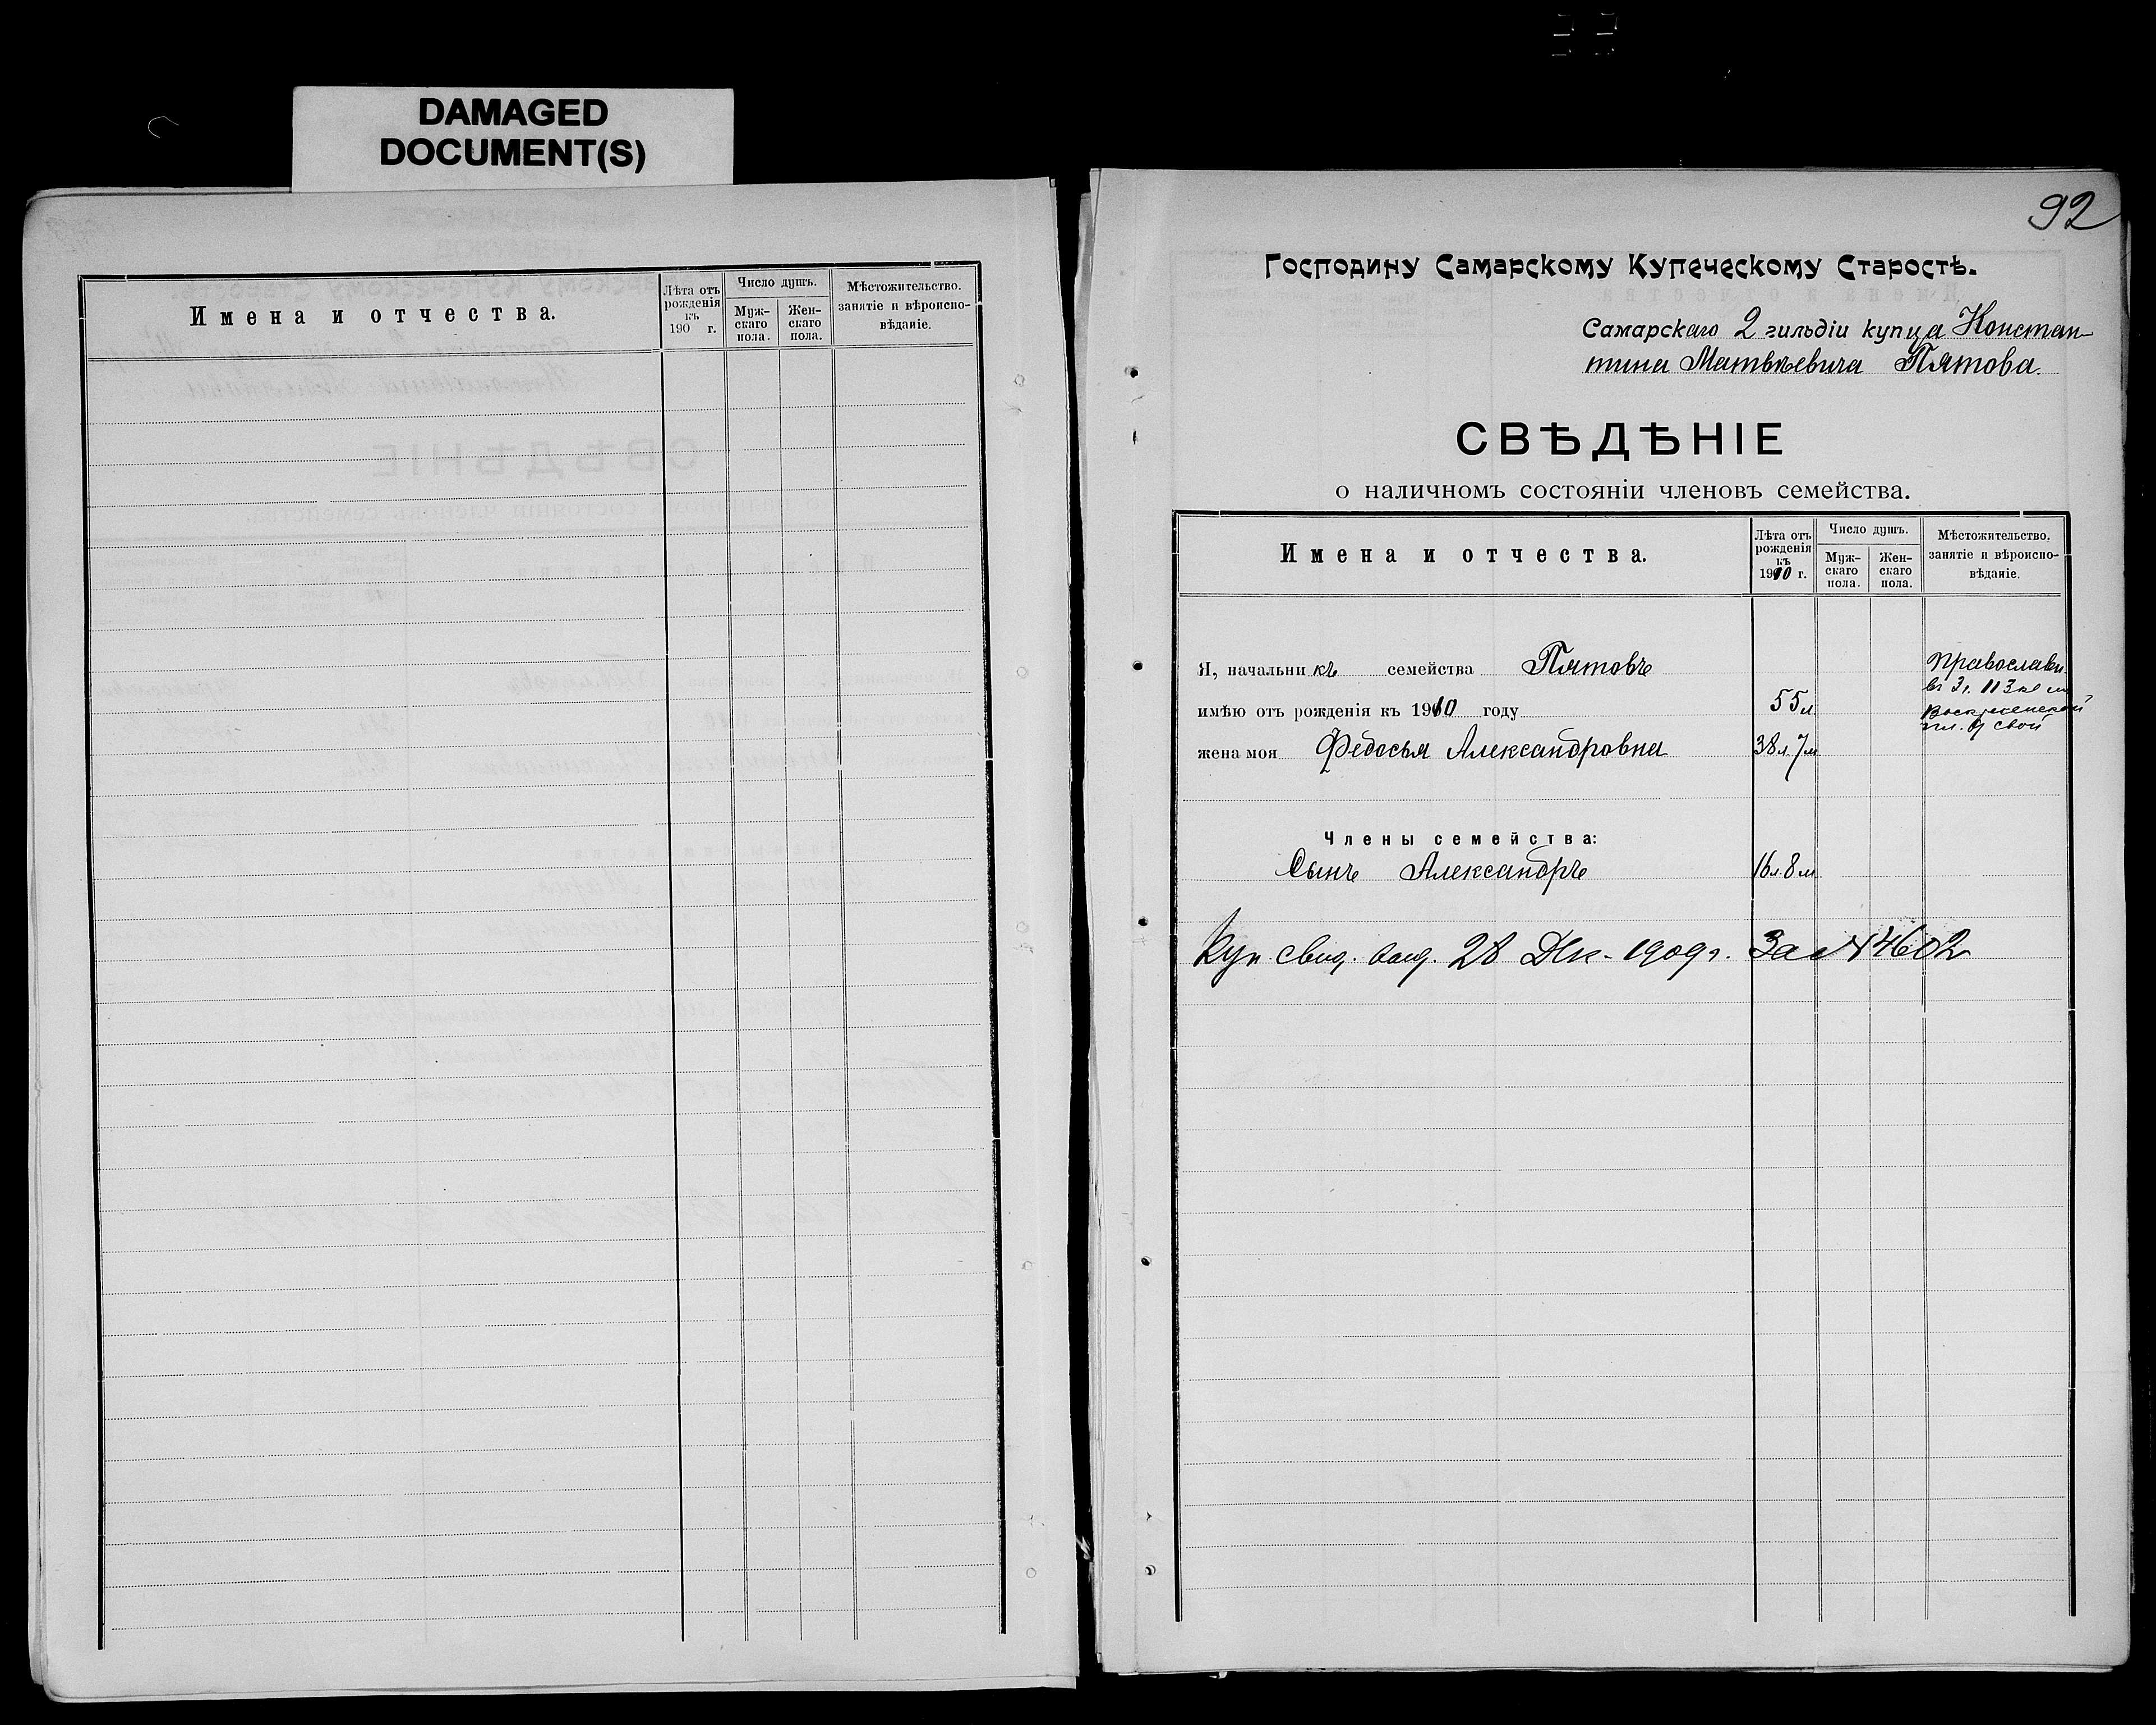 DAMAGED
DOCUMENT(S)
Имена и отчества.
Лѣта отъ рожденія къ 190 г.
Число душъ.
Мужскаго пола.
Женскаго пола.
Мѣстожительство. занятіе и вѣроисповѣданіе.
92
Господину Самарскому Купеческому Старостѣ.
Самарскаго 2 гильдіи купца Констан-
тина Матвѣевича Пятова.
СВѢДѢНІЕ
о наличномъ состояніи членовъ семейства.
Имена и отчества.
Лѣта отъ рожденія къ 1910 г.
Число душъ.
Мужскаго пола.
Женскаго пола.
Мѣстожительство. занятіе и вѣроисповѣданіе.
Я, начальникъ семейства Пятовъ
Православн.
въ 3 ч. 113 кв
имѣю отъ рожденія къ 1910 году 55 л
Воскресенской
свой
жена моя Федосья Александровна 38 л. 7 м
Члены семейства:
Сынъ Александръ 16 л. 8 м
Куп. Свид. выд. 28 Дек. 1909 г. За № 4602